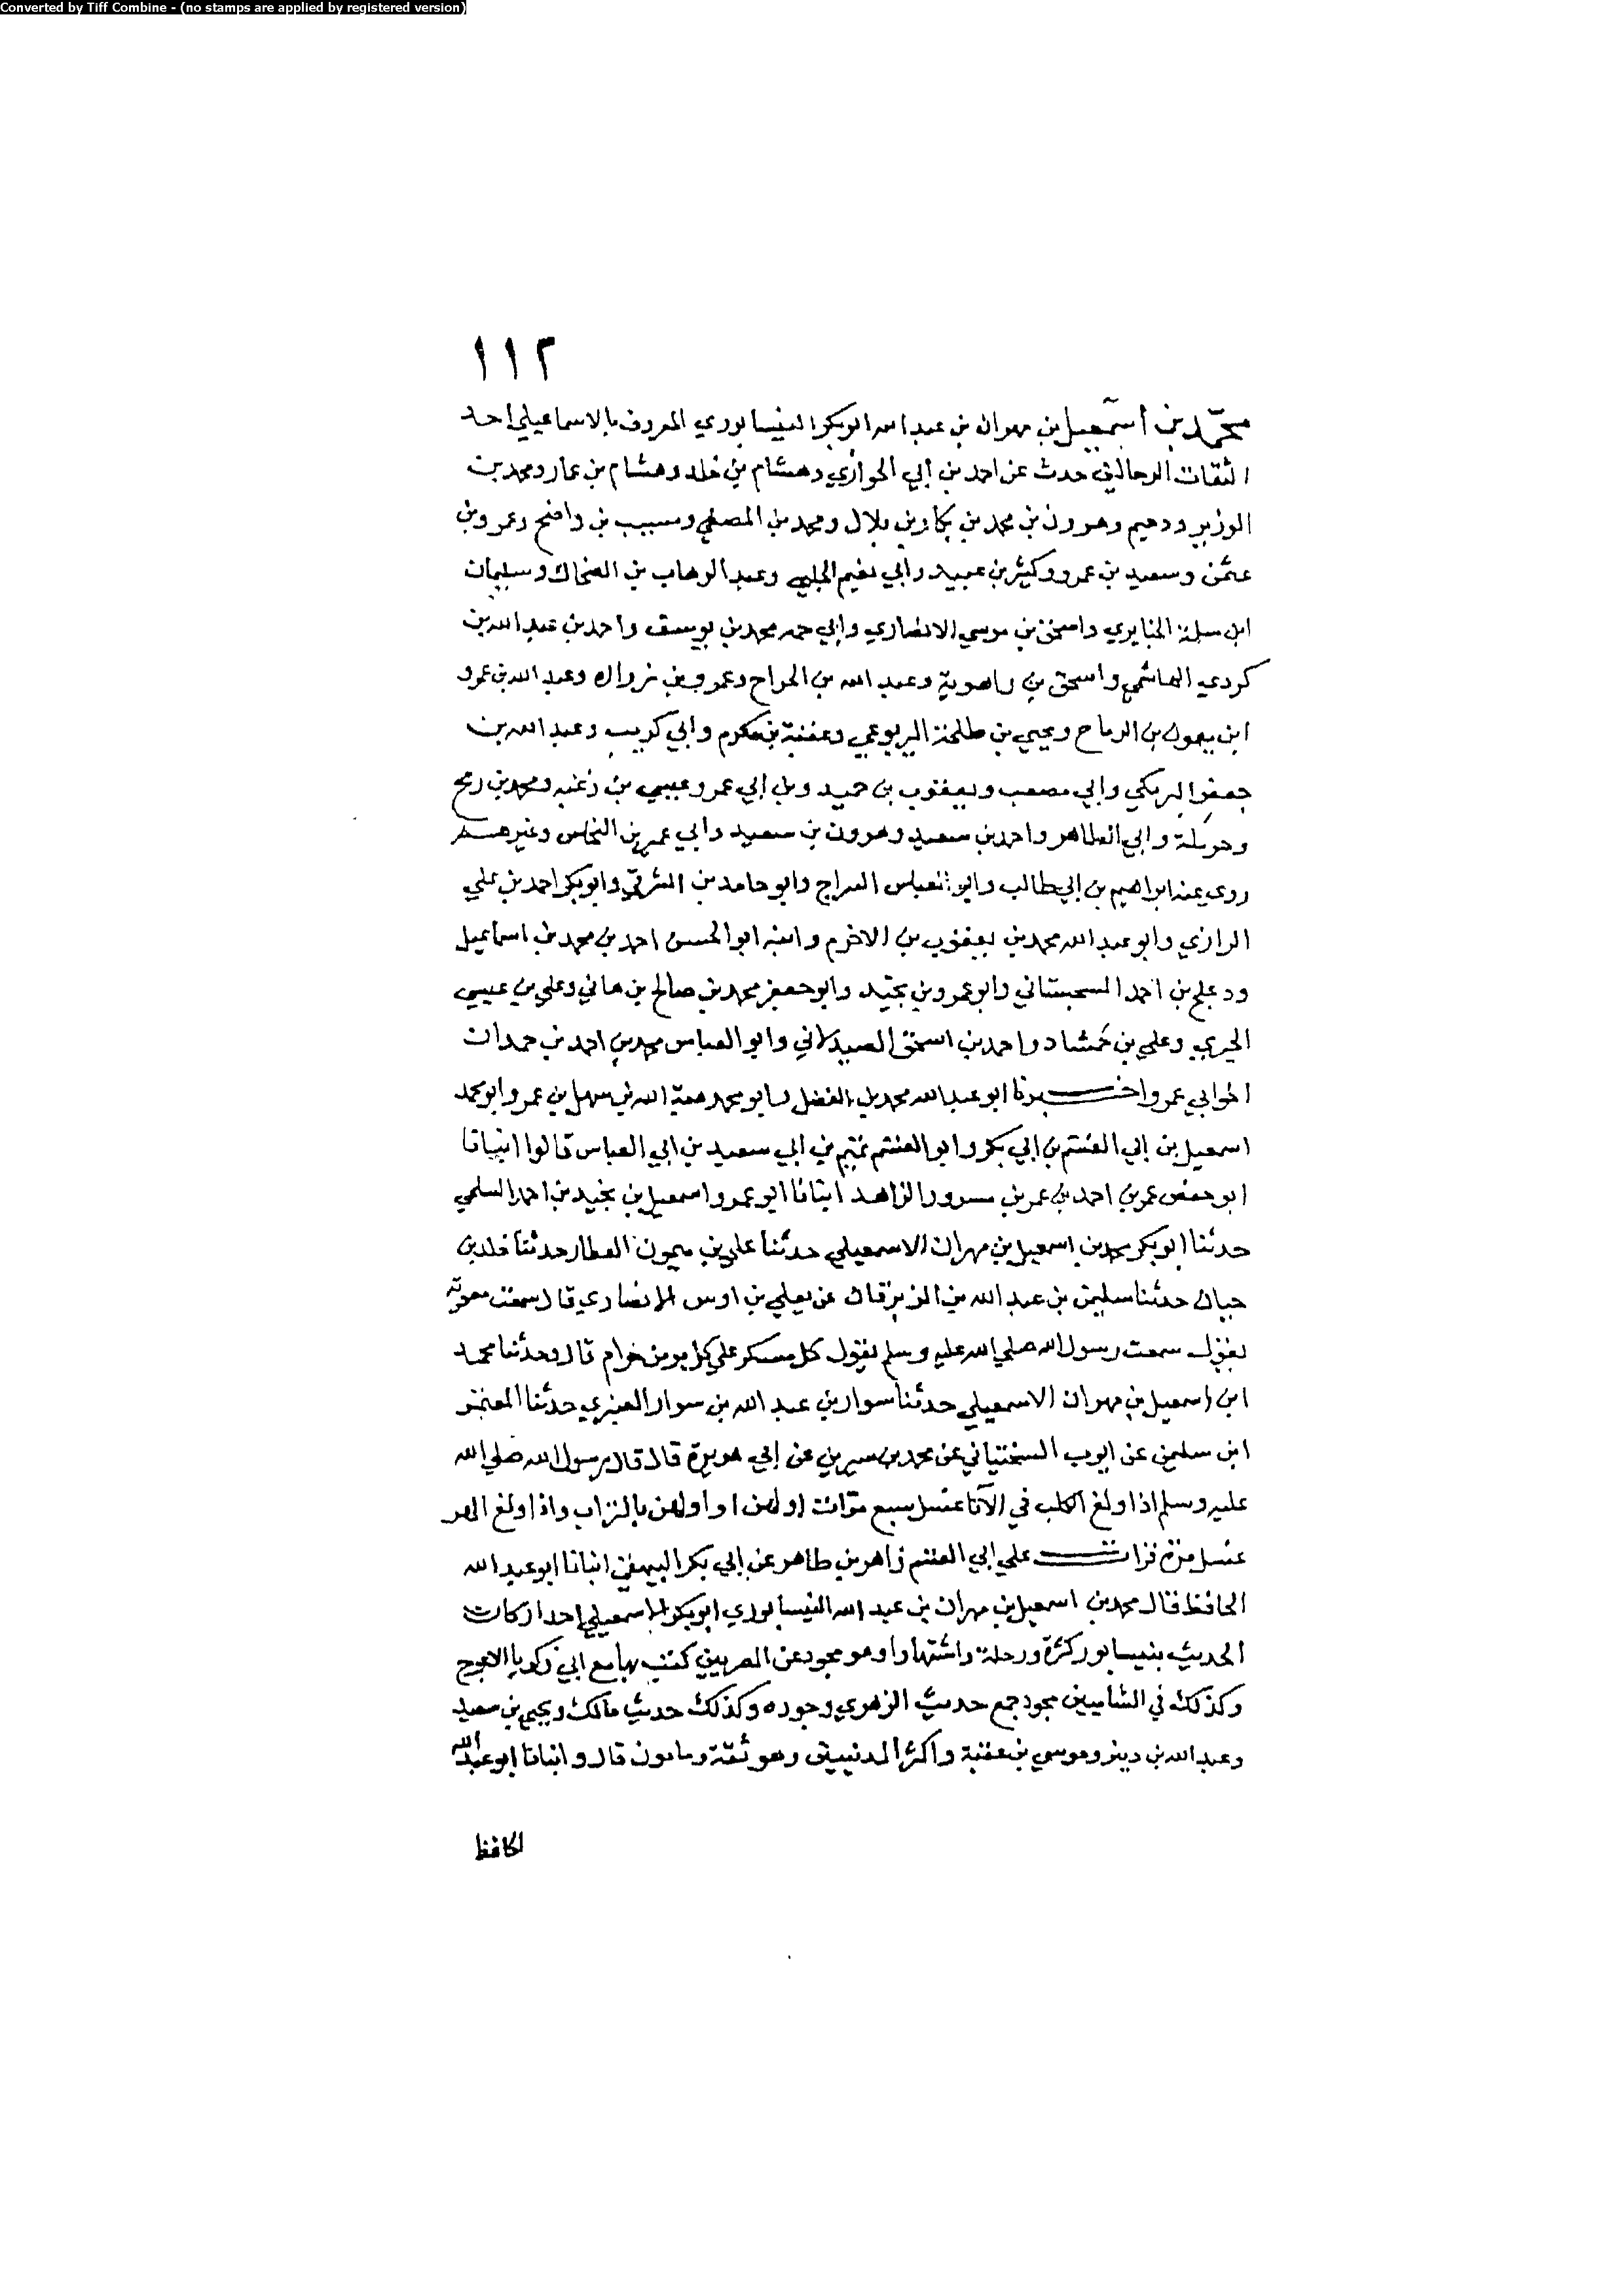 Converted by Tiff Combine - (no stamps are applied by registered version)
١١٢
محمد بن اسمعيل بن مهران بن عبد الله ابو بكر النيسابوري المعروف بالاسماعيلي احد
الثقات الرحالين حدث عن احمد بن أبي الحواري وهشام بن خلد وهشام بن عمار ومحمد بن
الوزير ودحيم وهرون بن محمد بن بكار بن بلال ومحمد بن المصفى ومسيب بن واضح وعمرو بن
عثمن وسعيد بن عمرو وكثير بن عبيد وابي نعيم الحلبي وعبد الوهاب بن الضحاك وسليمان
ابن سلمة الخبايري واسحق بن موسى الانصاري وابي حمه محمد بن يوسف واحمد بن عبد الله بن
كردي الهاشمي واسحق بن راهوية وعبد الله بن الجراح وعمرو بن زرارة وعبد الله بن عمرو
ابن ميمون بن الرماح ويحيى بن طلحة اليربوعي وعقبة بن مكرم وابي كريب وعبد الله بن
جعفر البرمكي وابي مصعب ويعقوب بن حميد وبن ابي عمر وعيسى بن زغبه ومحمد بن رمح
وحرملة وابي الطاهر واحمد بن سعيد وهرون بن سعيد وابي عمير بن النحاس وغيرهم
روى عنه ابراهيم بن ابي طالب وابو العباس السراج وابو حامد بن الشرقي وابو بكر احمد بن علي
الرازي وابو عبد الله محمد بن يعقوب بن الاخرم وابنه ابو الحسن احمد بن محمد بن اسماعيل
ودعلج بن احمد السجستاني وابو عمرو بن نجيد وابو جعفر محمد بن صالح بن هاني وعلي بن عيسى
الحيري وعلي بن حمشاد واحمد بن اسحق الصيدلاني وابو العباس محمد بن احمد بن حمدان
اخو ابي عمرو اخبرنا ابو عبد الله محمد بن الفضل وابو محمد هبة الله بن سهل بن عمر وابو محمد
اسمعيل بن ابي القسم بن ابي بكر وابو القسم تميم بن ابي سعيد بن ابي العباس قالوا انبانا
ابو حفص عمر بن احمد بن عمر بن مسرور الزاهد انبانا ابو عمرو اسمعيل بن نجيد بن احمد السلمي
حدثنا ابو بكر محمد بن اسمعيل بن مهران الاسمعيلي حدثنا علي بن ميمون العطار حدثنا خلد بن
حيان حدثنا سليمن بن عبد الله بن الزبرقان عن يعلي بن اوس الانصاري قال سمعت معوية
يقول سمعت رسول الله صلي الله عليه وسلم يقول كل مسكر علي كل مومن حرام قال وحدثنا محمد
ابن اسمعيل بن مهران الاسمعيلي حدثنا سوار بن عبد الله بن سوار العنبري حدثنا المعتمر
ابن سليمن عن ايوب السختياني عن محمد بن سيرين عن ابي هريرة قال قال رسول الله صلي الله
عليه وسلم اذا ولغ الكلب في الآنا غسل سبع مرات اولهن او اولهن بالتراب واذا ولغ الهر
غسل مرة قرات علي ابي القسم زاهر بن طاهر عن ابي بكر البيهقي انبانا ابو عبد الله
الحافظ قال محمد بن اسمعيل بن مهران بن عبد الله النيسابوري ابو بكر الاسمعيلي احد اركان
الحديث بنيسابور كثرة ورحلة واشتهارا وهو مجود عن المصريين كتب بها مع ابي زكريا الاعرج
وكذلك في الشاميين مجود جمع حديث الزهري وجوده وكذلك حديث مالك ويحيى بن سعيد
وعبد الله بن دينر وموسي بن عقبة واكثر المدنيين وهو ثقة ومامون قال وانبانا ابو عبد الله
الحافظ